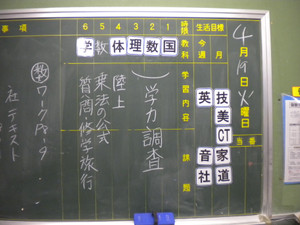 4月19日火曜日
当番
技美CT家道
英　音社
生活目標
今週
月
時限 1 2 3 4 5 6
教科 国 数 理 体 教 学
学習内容
学力調査
陸上
乗法の公式
修学旅行
課題
事項
数 ワーク
社 テキスト